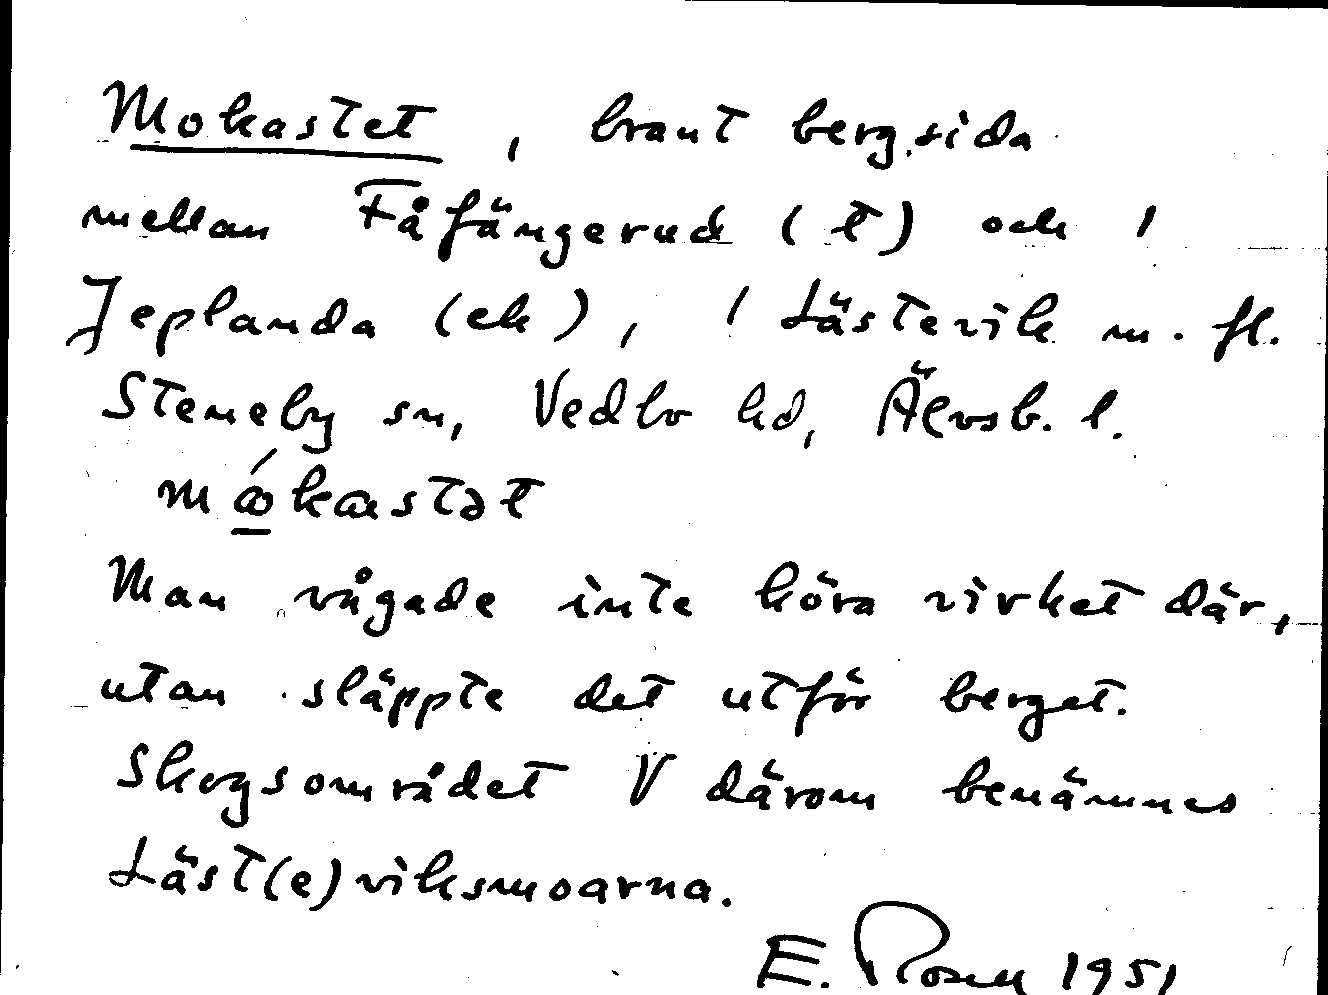 Mokastet, brant bergsida
mellan Fåfängerud (t) och /
Jeplanda (ek), / Lästevik m. fl.
Steneby sn, Vedbo hd, Älvsb. l.
Man vågade inte köra virket där,
utan släppte det utför berget.
Skogsområdet V därom benämnes
Läst(e)viksmoarna.
E. Rosell 1951